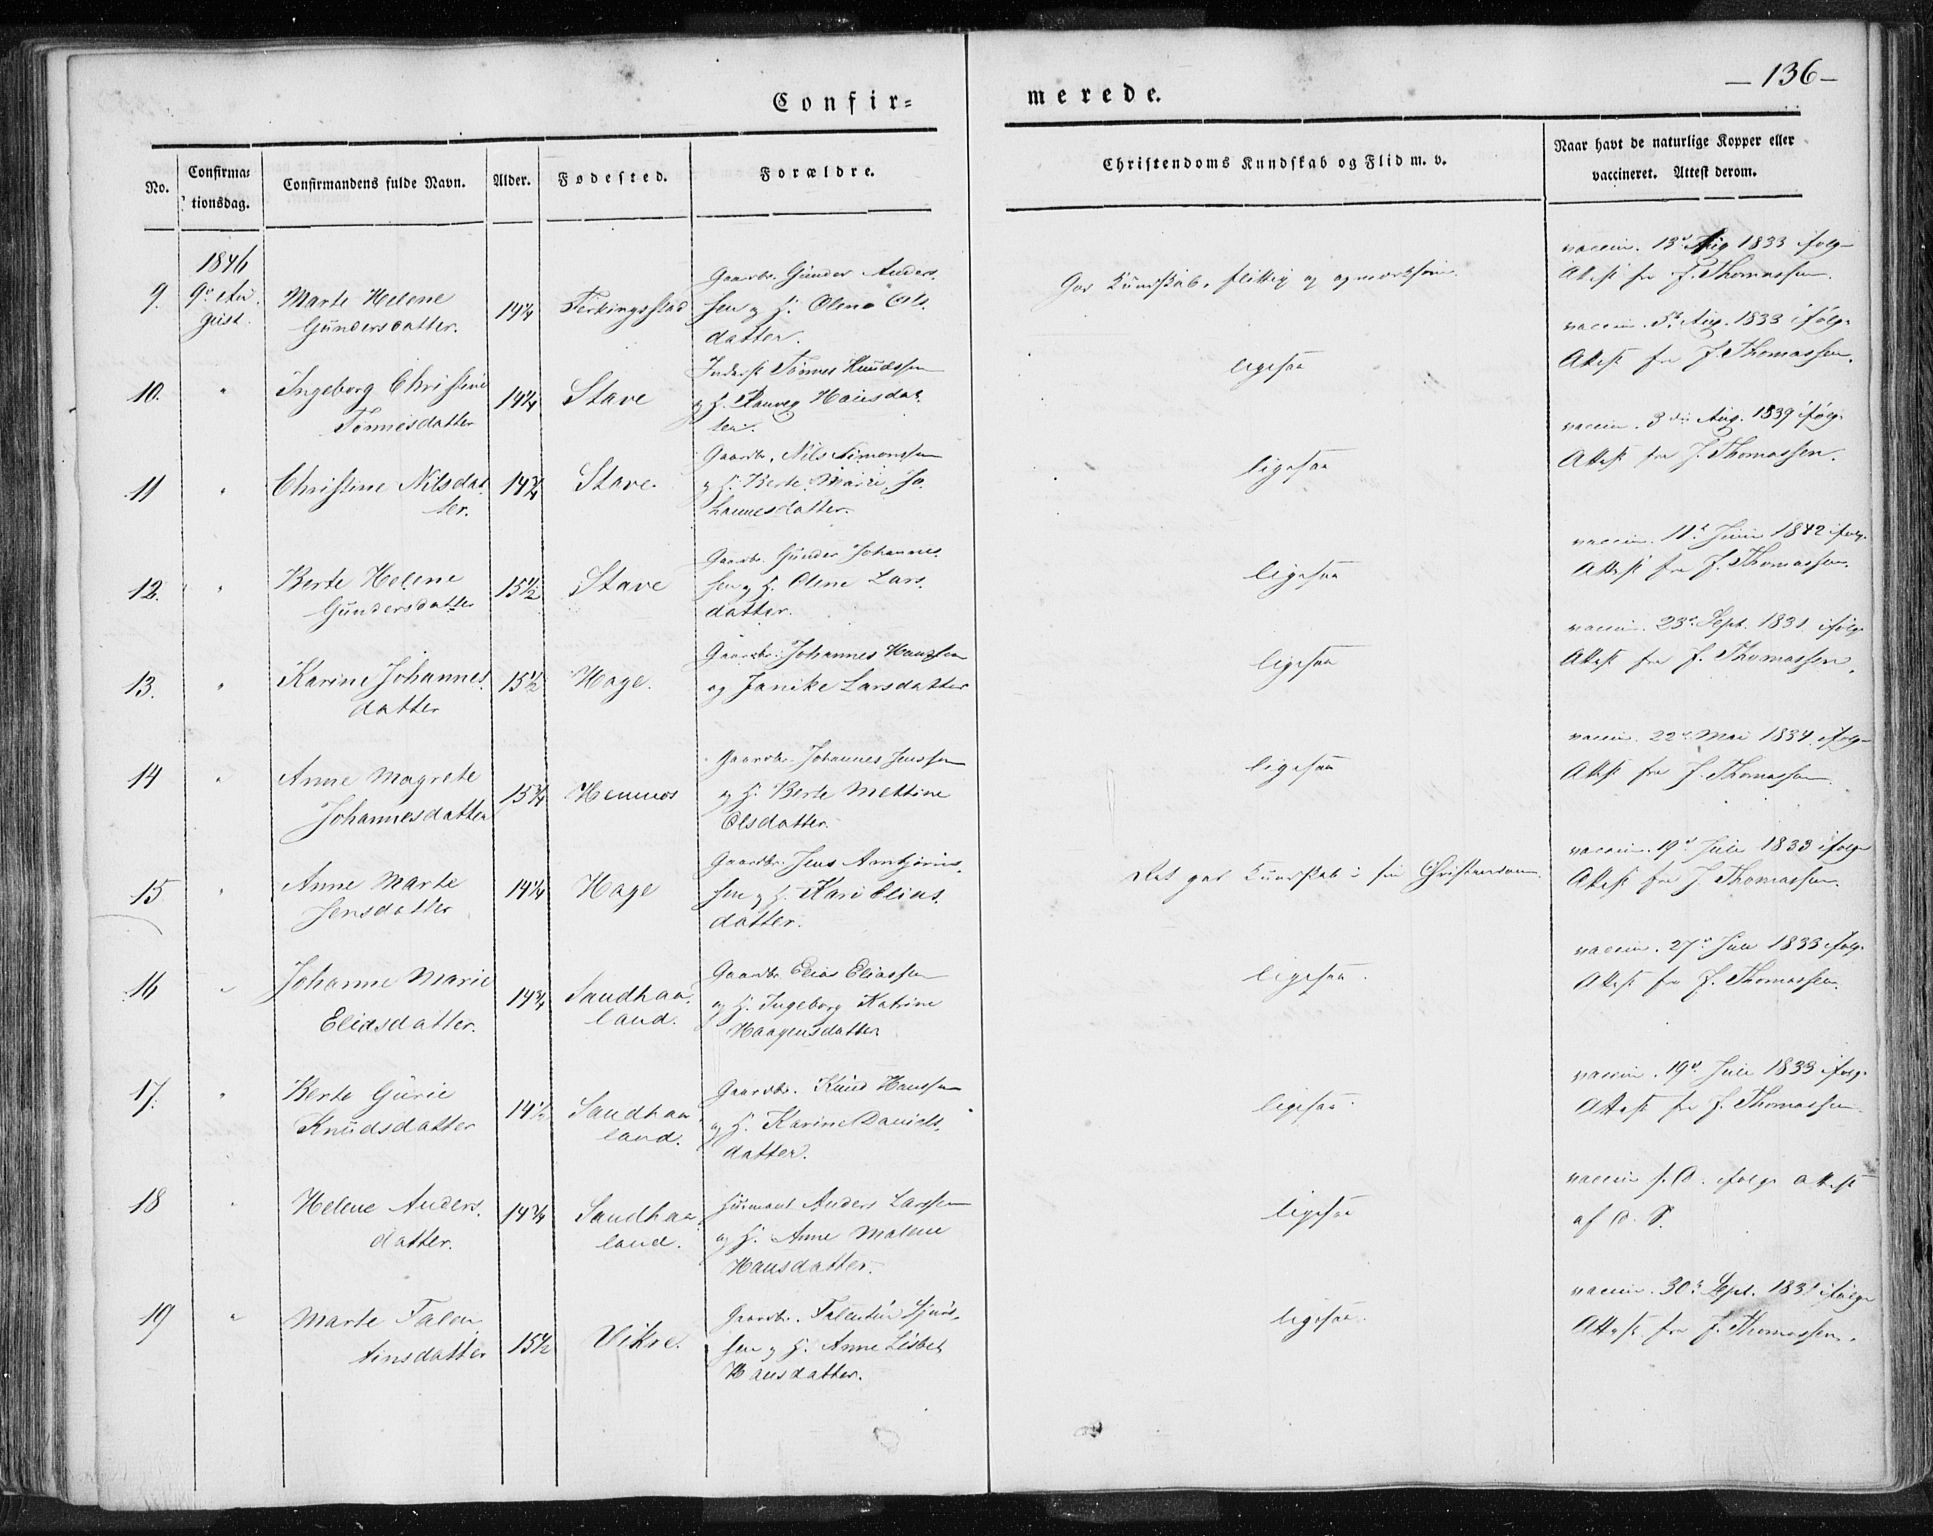 — 136 —
Confir= merede.
No.
Confirma=
tionsdag.
Confirmandens fulde Navn.
Alder.
Fødested.
Forældre.
Christendoms Kundskab og Flid m. v.
Naar havt de naturlige Kopper eller
vaccineret. Attest derom.
1846
9.
9de Au
gust.
Marte Helene
Gundersdatter.
14 1/4
Ferkingstad
Gaardbr. Gunder Anders
sen og H. Olene Ols
datter.
God Kundskab, flittig og opmærksom.
vaccin. 13d Aug 1833 ifølge
Attest fra J. Thomassen.
10.
"
Ingeborg Christine
Tønnesdatter
14 1/4
Stave
Inderst Tønnes Knudssen
og H. Hansdat
ter.
ligesaa
vaccin. 5t Aug. 1833 ifølge
Attest fra J. Thomassen.
11
"
Christine Nilsdat
ter.
14 3/4
Stave.
Gaardbr. Nils Simonssen
og H. Berte Marie Jo
hannesdatter.
ligesaa
vaccin. 3die Aug. 1839 ifølge
Attest fra J. Thomassen.
12.
"
Berte Helene
Gundersdatter
15 1/2
Stave
Gaardbr. Gunder Johannes
sen og H. Olene Lars
datter.
ligesaa
vaccin. 11t Juni 1842 ifølge
Attest fra J. Thomassen.
13.
"
Karine Johannes
datter
15 1/2
Hage.
Gaardbr. Johannes Hanssen
og Janike Larsdatter
ligesaa
vaccin. 23d Sept. 1831 ifølge
Attest fra J. Thomassen.
14
"
Anne Magrete
Johannesdatter
15 3/4
Hemnes
Gaardbr. Johannes Jenssen
og H. Berte Mettine
Olsdatter.
ligesaa
vaccin. 22d Mai 1834 ifølge
Attest fra J. Thomassen.
15
"
Anne Marte
Jensdatter
14 1/4
Hage
Gaardbr. Jens
sen og H. Kari Elias
datter.
Ret god Kundskab i sin Christendom.
vaccin. 19d Juli 1833 ifølge
Attest fra J. Thomassen.
16
"
Johanne Marie
Eliasdatter.
14 3/4
Sandhaa
land.
Gaardbr. Elias Eliassen
og H. Ingeborg Katrine
Haagensdatter
ligesaa.
vaccin. 27d Juli 1833 ifølge
Attest fra J. Thomassen.
17.
"
Berte Gurie
Knudsdatter
14 1/2
Sandhaa
land.
Gaardbr. Knud Hanssen
og H. Karine Daniels
datter.
ligesaa.
vaccin. 19d Juli 1833 ifølge
Attest fra J. Thomassen.
18
"
Helene Anders
datter.
14 3/4
Sandhaa
land.
Huusmand Anders Larssen
og H. Anne Malene
Hansdatter.
ligesaa
vaccin s. D. ifølge Attest
af D. S.
19
"
Marte Falen
tinsdatter
15 1/2
Vikre.
Gaardbr. Falentin
sen og H. Anne Lisbet
Hansdatter.
ligesaa.
vaccin. 30t Sept. 1831 ifølge
Attest fra J. Thomassen.